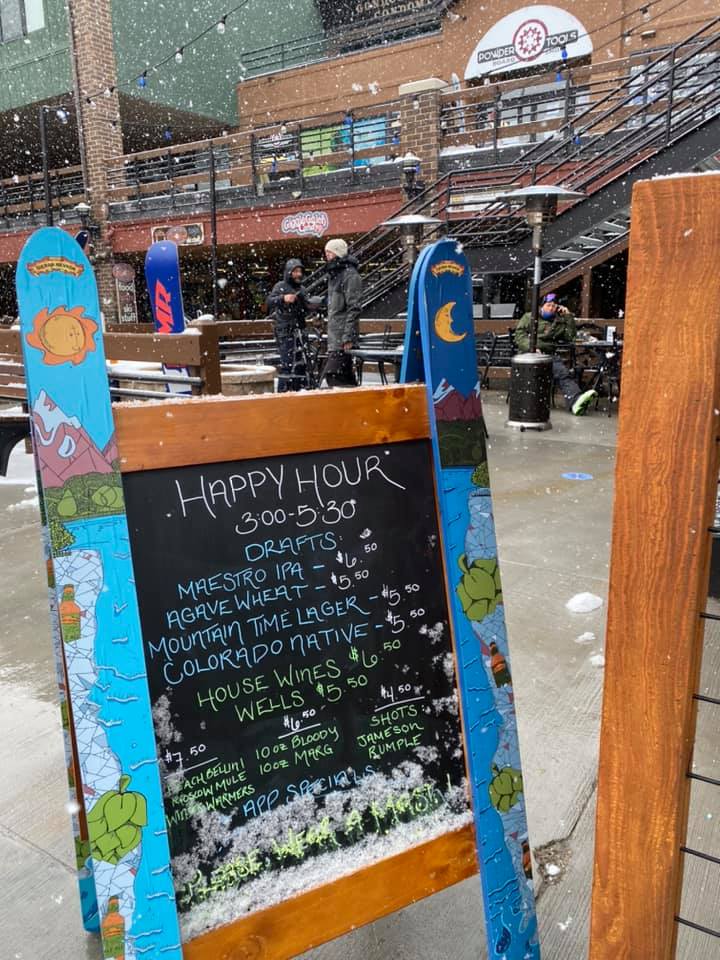 POWDER TOOLS
BOARD
HAPPY HOUR
3:00-5:30
DRAFTS:
MAESTRO IPA - $6.50
AGAVE WHEAT - $5.50
MOUNTAIN TIME LAGER - $5.50
COLORADO NATIVE - $5.50
HOUSE WINES $6.50
WELLS $5.50
$7.50
MOSCOW MULE
WARMERS
$6.50
10 oz BLOODY
10 oz MARG
$4.50
SHOTS:
JAMESON
RUMPLE
APP SPECIALS
PLEASE WEAR A MASK!